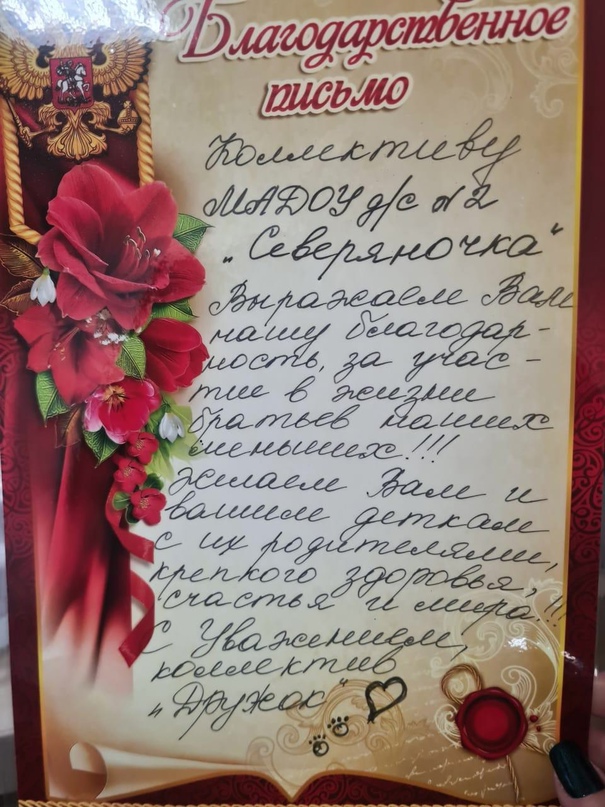 Благодарственное
письмо
Коллективу
МАДОУ д/с №2
„Северяночка“
Выражаем Вам
нашу благодар-
ность, за учас-
тие в жизни
братьев наших
меньших!!!
Желаем Вам и
вашим деткам
с их родителями,
крепкого здоровья,
счастья и мира!!!
С Уважением,
коллектив
„Дружок“